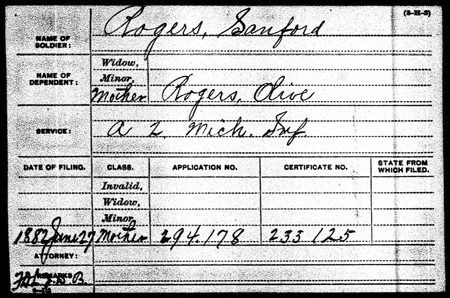 (3-H-3)
NAME OF SOLDIER: Rogers, Sanford
NAME OF DEPENDENT: Widow,
Minor,
Mother Rogers, Olive
SERVICE: A 2 Mich. Inf
DATE OF FILING. CLASS. APPLICATION NO. CERTIFICATE NO. STATE FROM WHICH FILED.
Invalid,
Widow,
Minor,
1882 June 27 Mother 294.178 233 125
ATTORNEY:
REMARKS